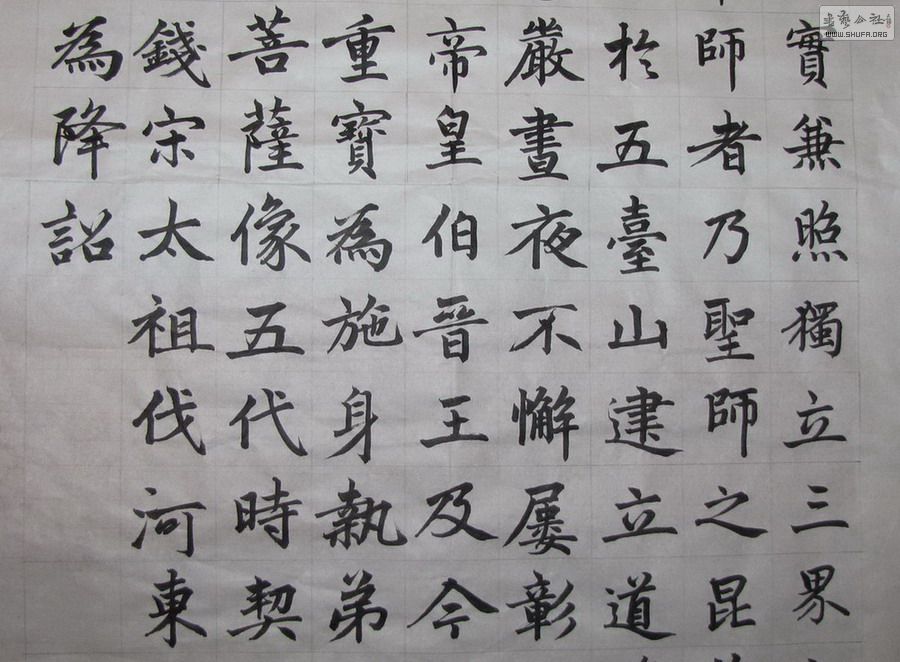 實兼照獨立三界
師者乃聖師之昆
於五臺山建立道
嚴晝夜不懈屢彰
帝皇伯晉王及今
重寶為施身執弟
菩薩像五代時契
錢宋太祖伐河東
為降詔
書藝公社
WWW.SHUFA.ORG